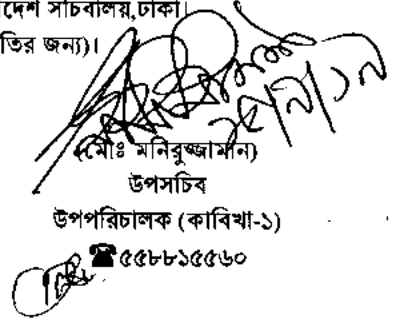 দেশ সচিবালয়,ঢাকা।
তির জন্য)।
(মোঃ মনিরুজ্জামান)
উপসচিব
উপপরিচালক (কাবিখা-১)
☎৫৫৮৮১৫৫৬০